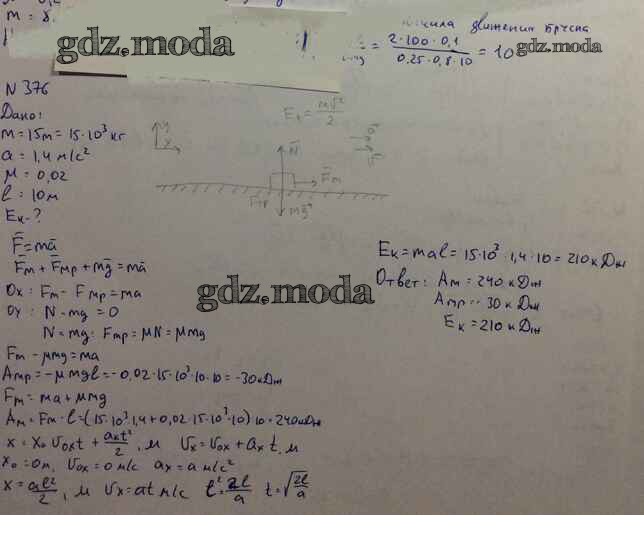 m = 8.
= 2·100·0,1 / 0,25·0,8·10 = 10
gdz.moda
N 376
Дано:
m = 15т = 15·10³ кг
a = 1,4 м/с²
μ = 0,02
l = 10м
Eк - ?
Eк = mv²/2
y
x
N̄
F̄т
F̄тр
mḡ
F̄ = mā
F̄т + F̄тр + mḡ = mā
Ox: Fт - Fтр = ma
Oy: N - mg = 0
N = mg; Fтр = μN = μmg
Fт - μmg = ma
Aтр = -μmgl = -0,02·15·10³·10·10 = -30кДж
Fт = ma + μmg
Aт = Fт·l = (15·10³·1,4 + 0,02·15·10³·10)·10 = 240кДж
x = x₀ v₀ₓt + aₓt²/2, м vₓ = v₀ₓ + aₓt, м
x₀ = 0м, v₀ₓ = 0 м/с aₓ = a м/с²
x = at²/2, м vₓ = at м/с t² = 2l/a t = √2l/a
Eк = mal = 15·10³·1,4·10 = 210кДж
Ответ: Aт = 240 кДж
Aтр = -30 кДж
Eк = 210 кДж
gdz.moda